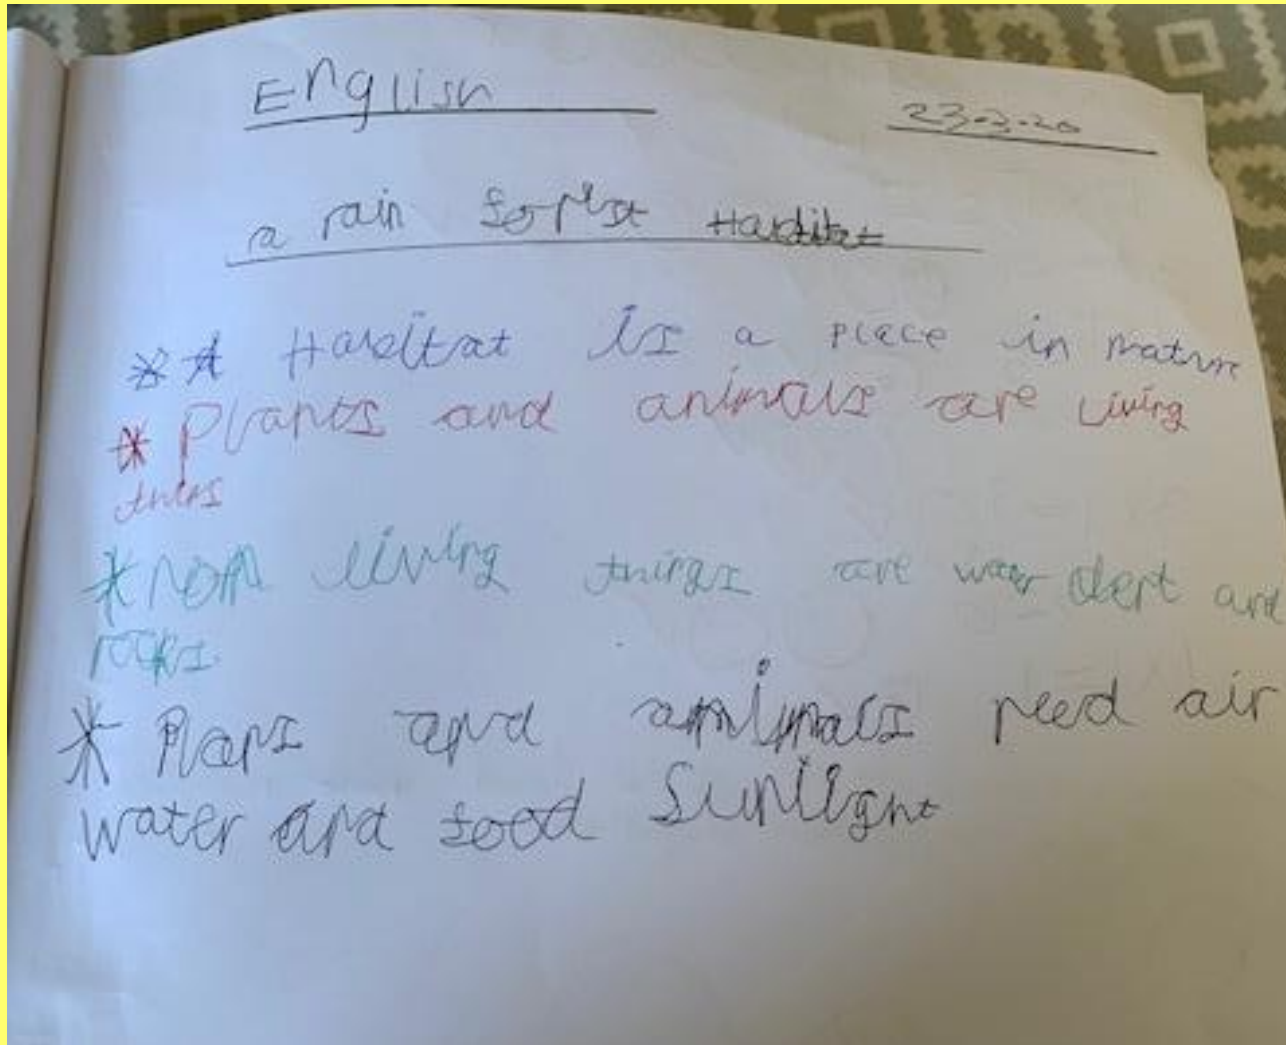 English
23.3.20
a rain forest Habitat
* A Habitat is a place in nature
* Plants and animals are living
thins
* non living things are water dert and
rocks.
* Plans and animals need air
water and food Sunlight